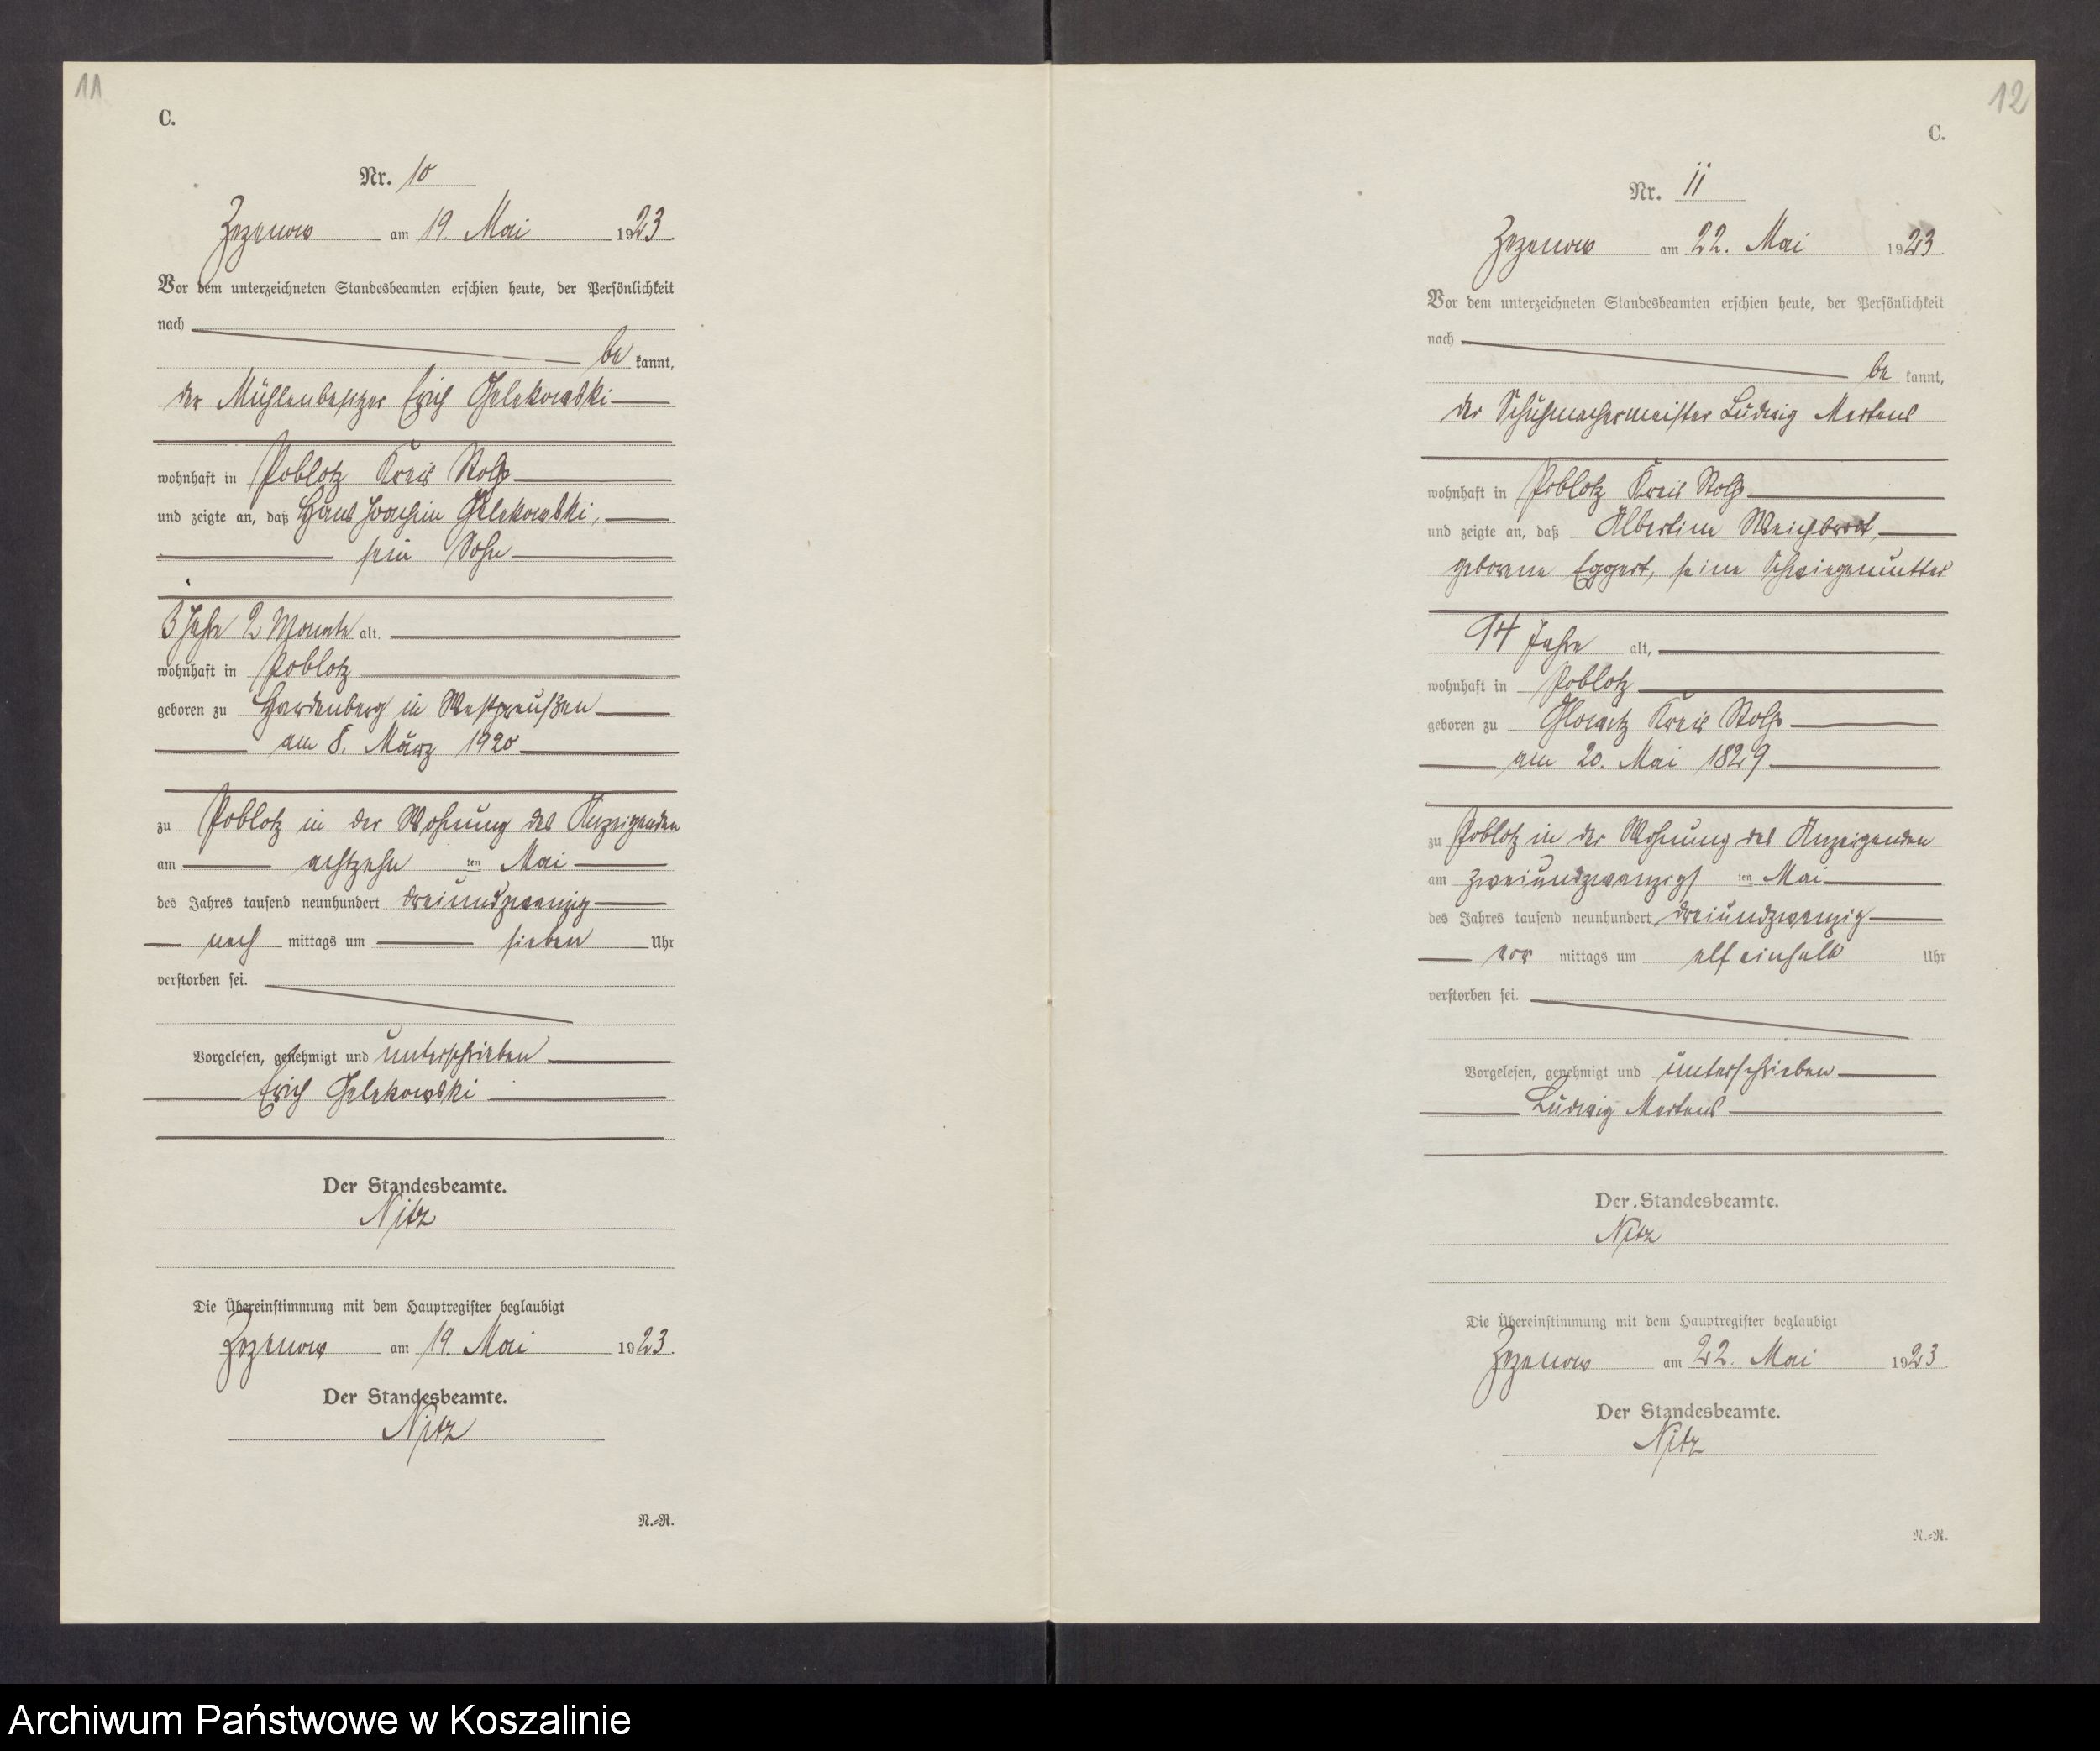 11
C.
Nr. 10
Zezenow am 19. Mai 1923.
Vor dem unterzeichneten Standesbeamten erschien heute, der Persönlichkeit
nach
be kannt,
der Mühlenbesitzer Erich Gelekowski
wohnhaft in Poblotz Kreis Stolp
und zeigte an, daß Hans Joachim Gelekowski,
sein Sohn
3 Jahre 2 Monate alt.
wohnhaft in Poblotz
geboren zu Hardenberg in Westpreußen
am 8. März 1920
zu Poblotz in der Wohnung des Anzeigenden
am achtzehn ten Mai
des Jahres tausend neunhundert dreiundzwanzig
nach mittags um sieben Uhr
verstorben sei.
Vorgelesen, genehmigt und unterschrieben
Erich Gelekowski
Der Standesbeamte.
Nitz
Die Übereinstimmung mit dem Hauptregister beglaubigt
Zezenow am 19. Mai 1923.
Der Standesbeamte.
Nitz
N.=R.
12
C.
Nr. 11
Zezenow am 22. Mai 1923.
Vor dem unterzeichneten Standesbeamten erschien heute, der Persönlichkeit
nach
be kannt,
der Schuhmachermeister Ludwig Mertens
wohnhaft in Poblotz Kreis Stolp
und zeigte an, daß Albertine Weichbrodt,
geborene Eggert, seine Schwiegermutter
94 Jahre alt,
wohnhaft in Poblotz
geboren zu Glowitz Kreis Stolp
am 20. Mai 1829
zu Poblotz in der Wohnung des Anzeigenden
am zweiundzwanzigs ten Mai
des Jahres tausend neunhundert dreiundzwanzig
vor mittags um elf einhalb Uhr
verstorben sei.
Vorgelesen, genehmigt und unterschrieben
Ludwig Mertens
Der Standesbeamte.
Nitz
Die Übereinstimmung mit dem Hauptregister beglaubigt
Zezenow am 22. Mai 1923.
Der Standesbeamte.
Nitz
N.=R.
Archiwum Państwowe w Koszalinie